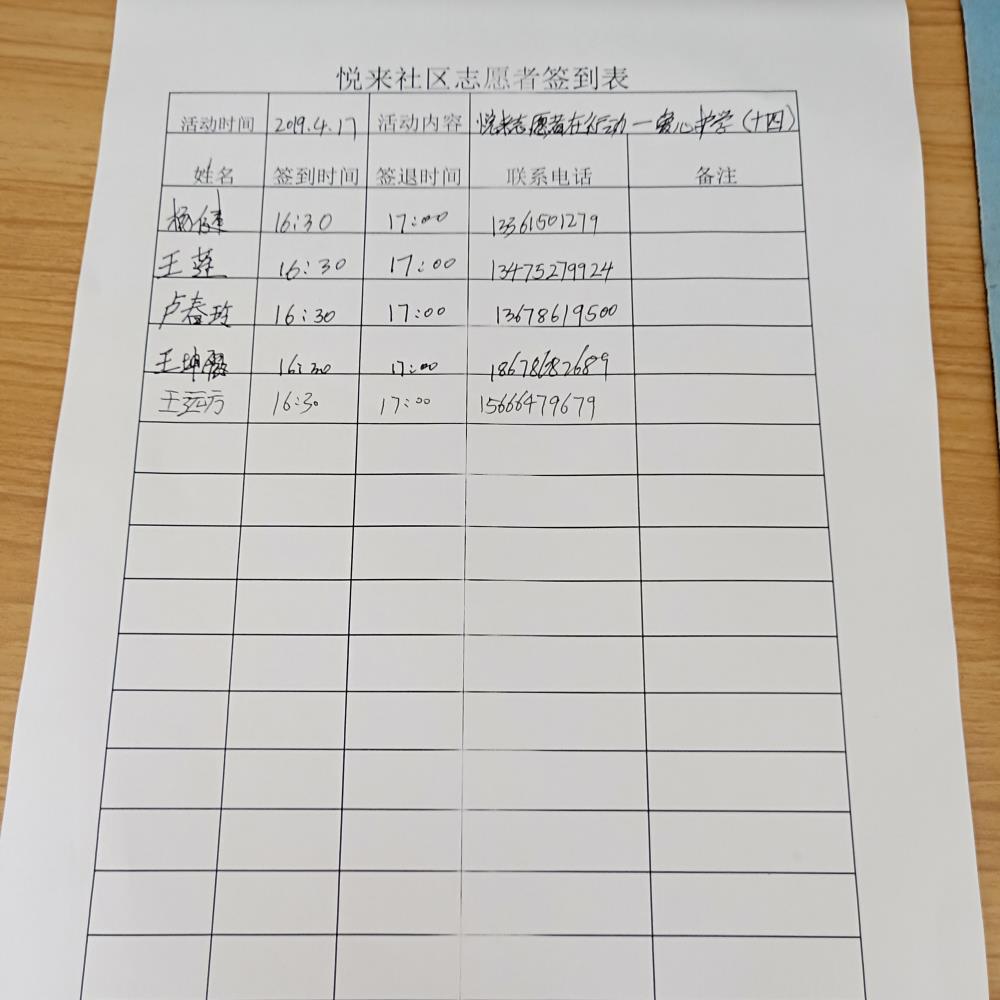 悦来社区志愿者签到表
活动时间 2019.4.17 活动内容 悦来志愿者在行动一爱心护学(十四)
姓名 签到时间 签退时间 联系电话 备注
杨健 16:30 17:00 13361501279
王莲 16:30 17:00 13475279924
卢春玲 16:30 17:00 13678619500
王坤 16:30 17:00 18678682689
王远方 16:30 17:00 15666479679